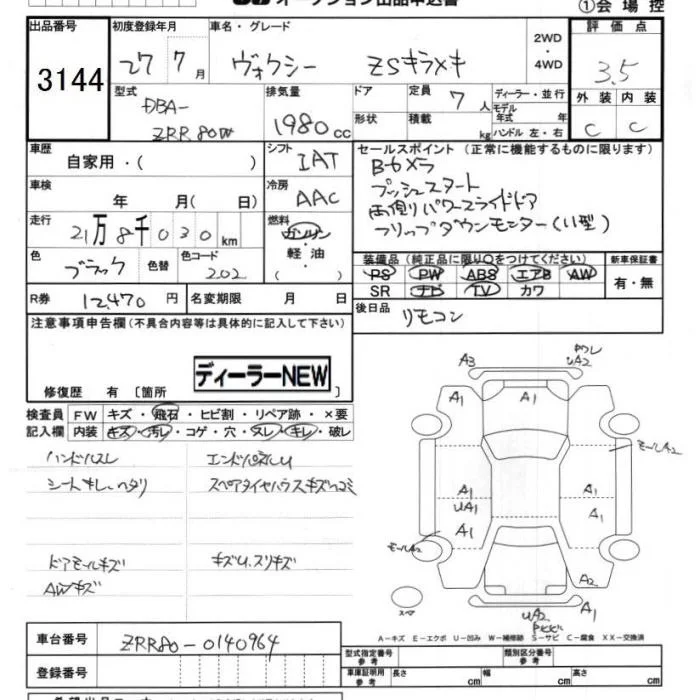 オークション出品申込書
①会場控
出品番号 初度登録年月 車名・グレード 2WD・4WD 評価点
3144 27 7月 ヴォクシー ZSキラメキ 3.5
型式 DBA-ZRR80W 排気量 1980cc ドア 定員 7人 ディーラー・並行 外装 内装
形状 積載 kg モデル年式 年 ハンドル 左・右 C C
車歴 自家用・( ) シフト IAT セールスポイント (正常に機能するものに限ります)
Bカメラ
車検 年 月( 日) 冷房 AAC プッシュスタート
両側パワースライドドア
走行 21万8千030km 燃料 ガソリン・軽油・( ) フリップダウンモニター(11型)
色 ブラック 色替 色コード 202 装備品 (純正品に限り○をつけてください) 新車保証書
PS PW ABS エアB AW 有・無
SR ナビ TV カワ
R券 12,470円 名変期限 月 日 後日品 リモコン
注意事項申告欄(不具合内容等は具体的に記入して下さい)
ディーラーNEW
修復歴 有 〔箇所
検査員記入欄 FW キズ・飛石・ヒビ割・リペア跡・×要
内装 キズ・汚レ・コゲ・穴・スレ・キレ・破レ
ハンドルスレ エンドパネルU
シートキレ、ヘタリ スペアタイヤハウスキズ、ゴミ
ドアモールキズ キズU、スリキズ
AWキズ
A3 UA2
A1 A1 A1
モールA2
A1 A1
UA1
A1 A1
モールA2
A2
スペア UA2 A1
A-キズ E-エクボ U-凹み W-補修跡 S-サビ C-腐食 XX-交換済
車台番号 ZRR80-0140964
登録番号
型式指定番号 参考 類別区分番号 参考
車庫証明用 参考 長さ cm 幅 cm 高さ cm